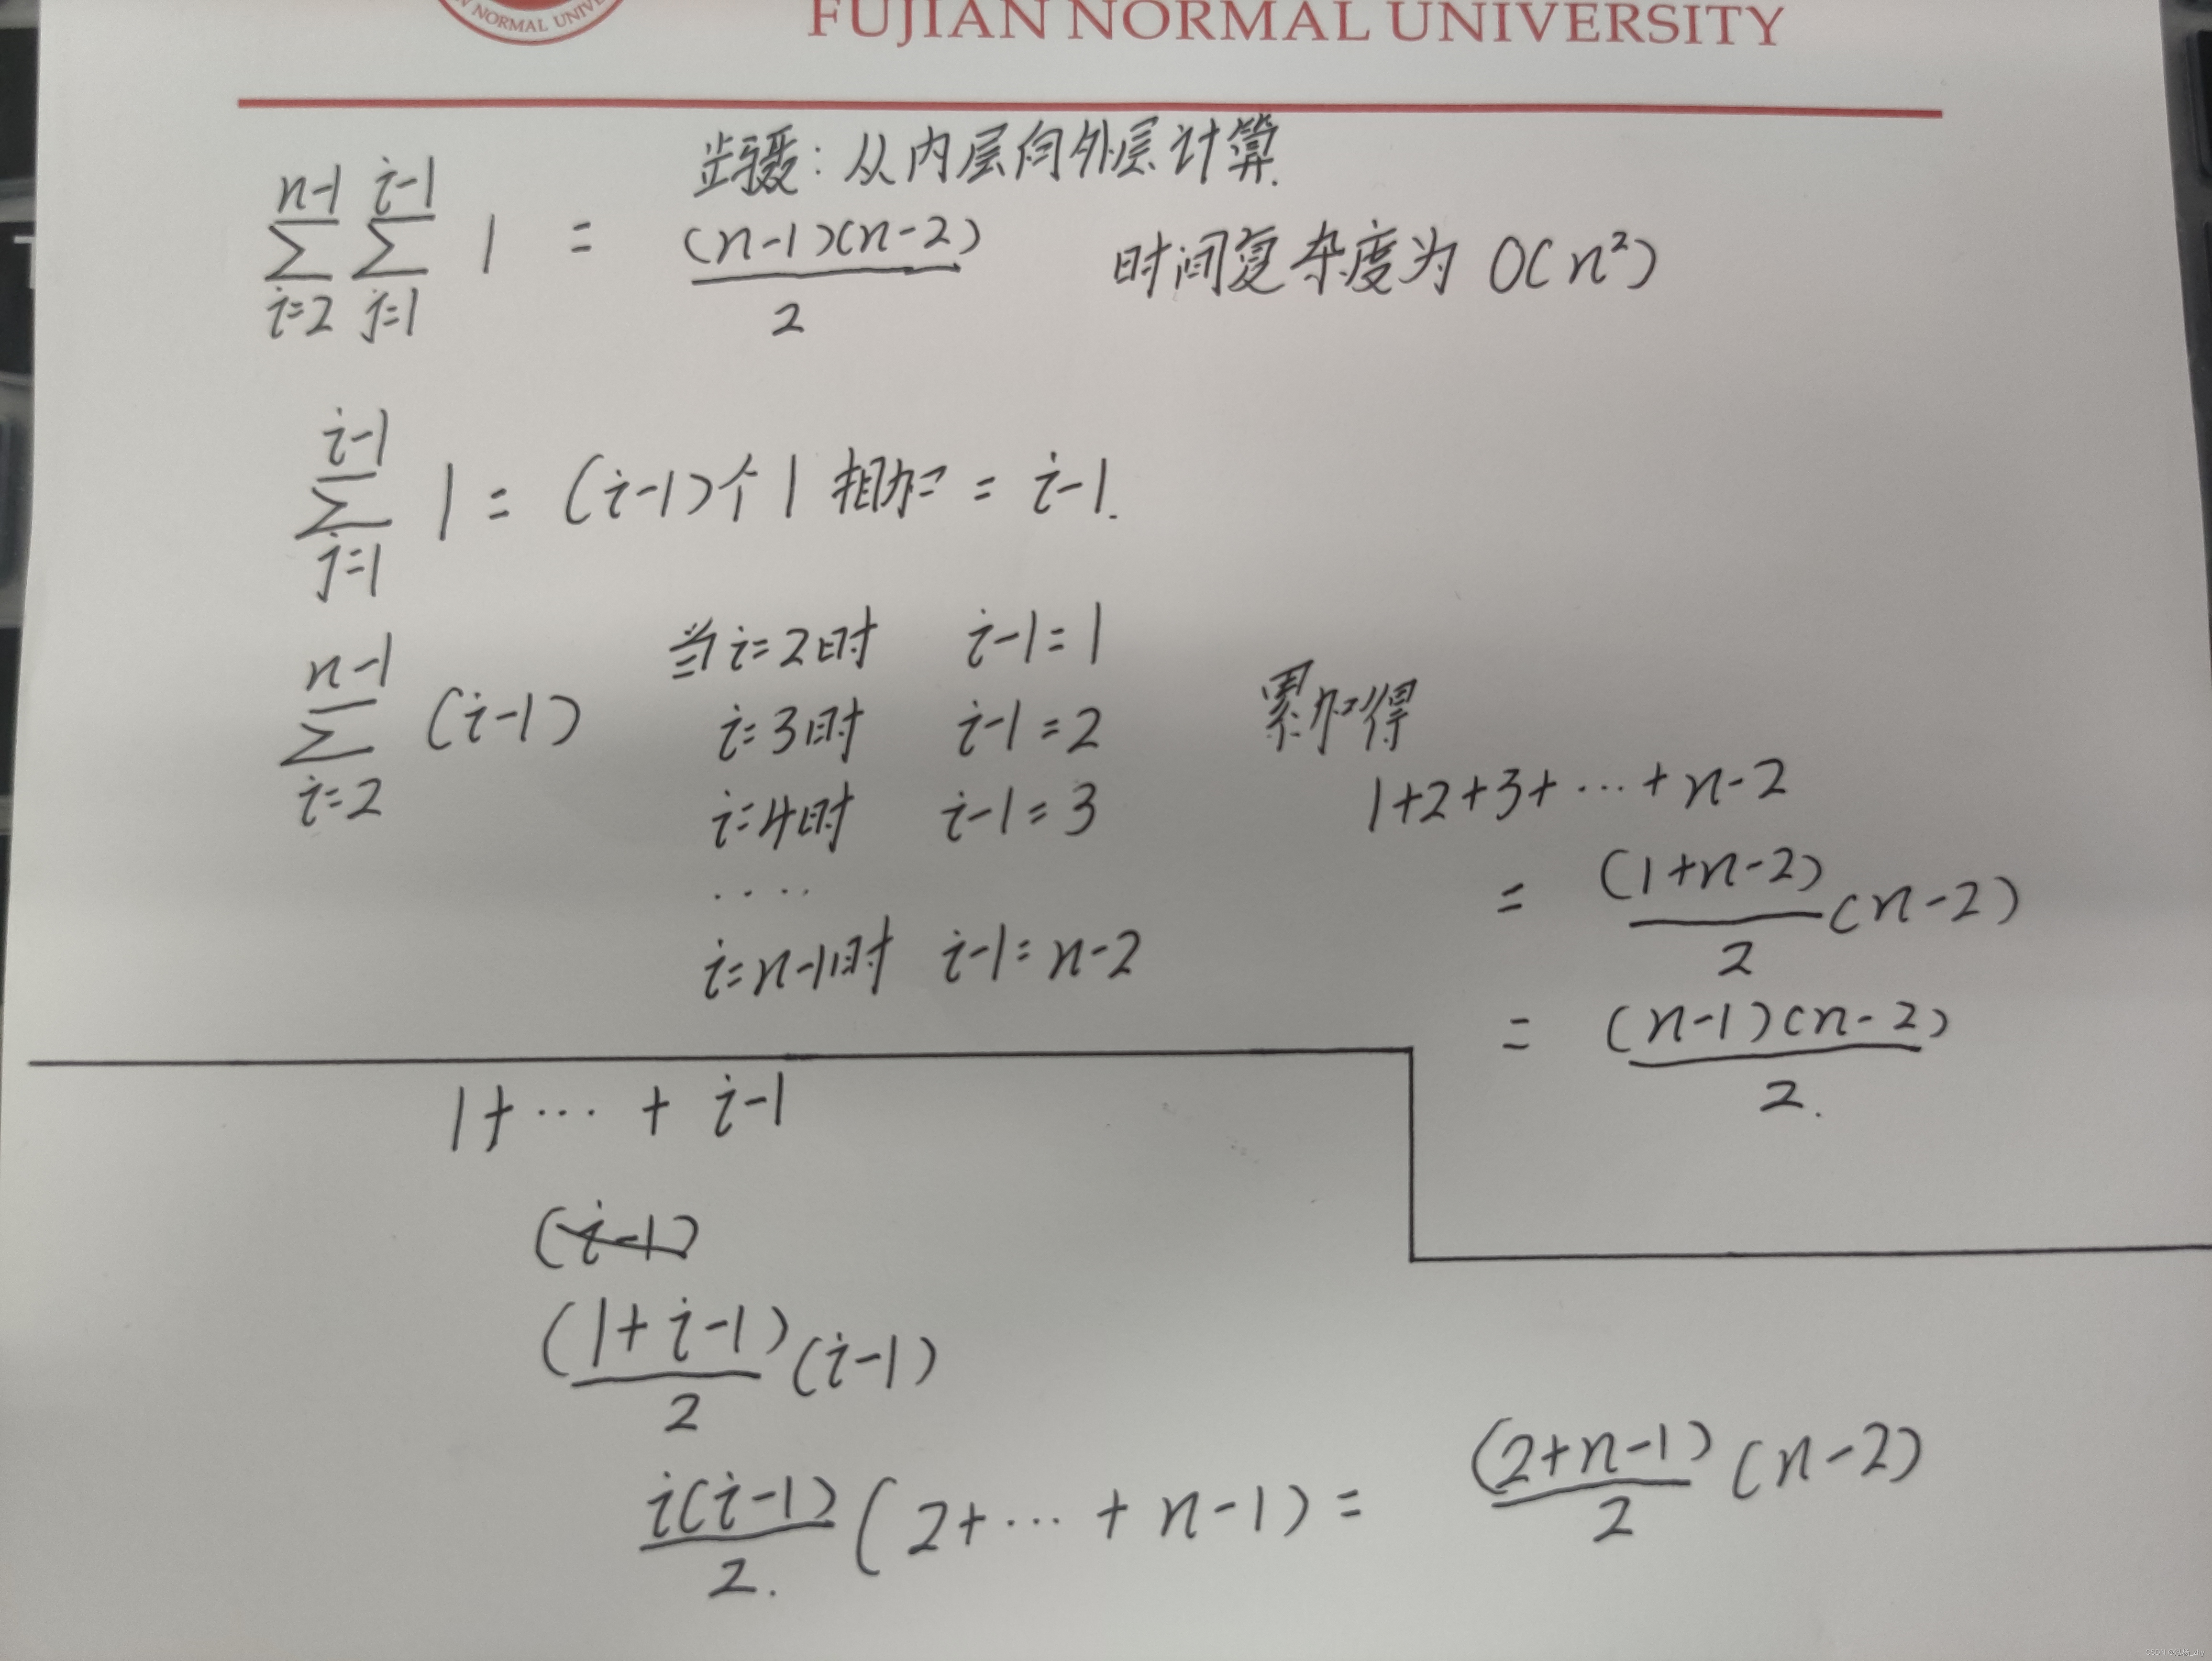 N NORMAL UNIV
FUJIAN NORMAL UNIVERSITY
步骤：从内层向外层计算.
n-1 i-1
∑ ∑ 1 = (n-1)(n-2)/2 时间复杂度为 O(n²)
i=2 j=1
i-1
∑ 1 = (i-1)个1相加 = i-1.
j=1
n-1
∑ (i-1)
i=2
当i=2时 i-1=1
i=3时 i-1=2
i=4时 i-1=3
....
i=n-1时 i-1=n-2
累加得
1+2+3+…+n-2
= (1+n-2)/2 (n-2)
= (n-1)(n-2)/2.
1+…+i-1
(i-1)
(1+i-1)/2 (i-1)
i(i-1)/2. (2+…+n-1) = (2+n-1)/2 (n-2)